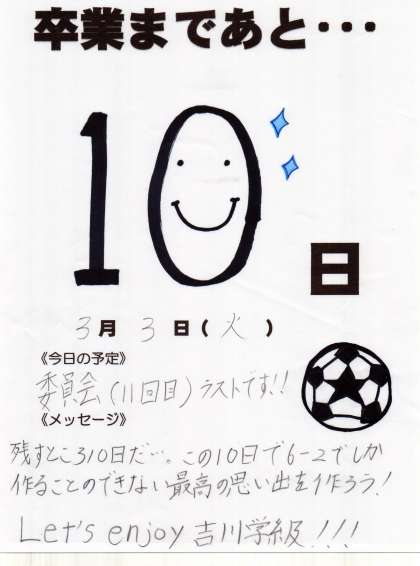 卒業まであと・・・
10日
3月3日(火)
《今日の予定》
委員会(11回目)ラストです!!
《メッセージ》
残すところ10日だ…。この10日で6-2でしか
作ることのできない最高の思い出を作ろう!
Let's enjoy 吉川学級!!!